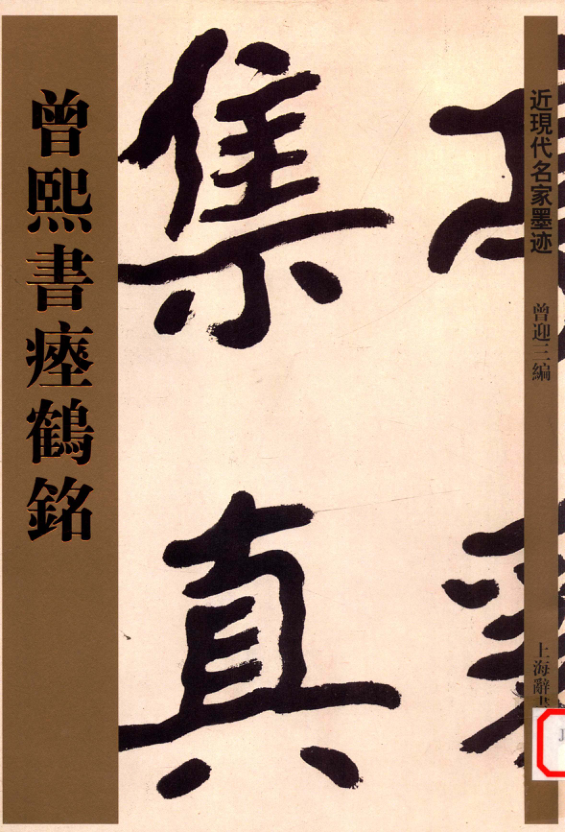 曾熙書瘞鶴銘
近現代名家墨迹
曾迎三編
上海辭
集真